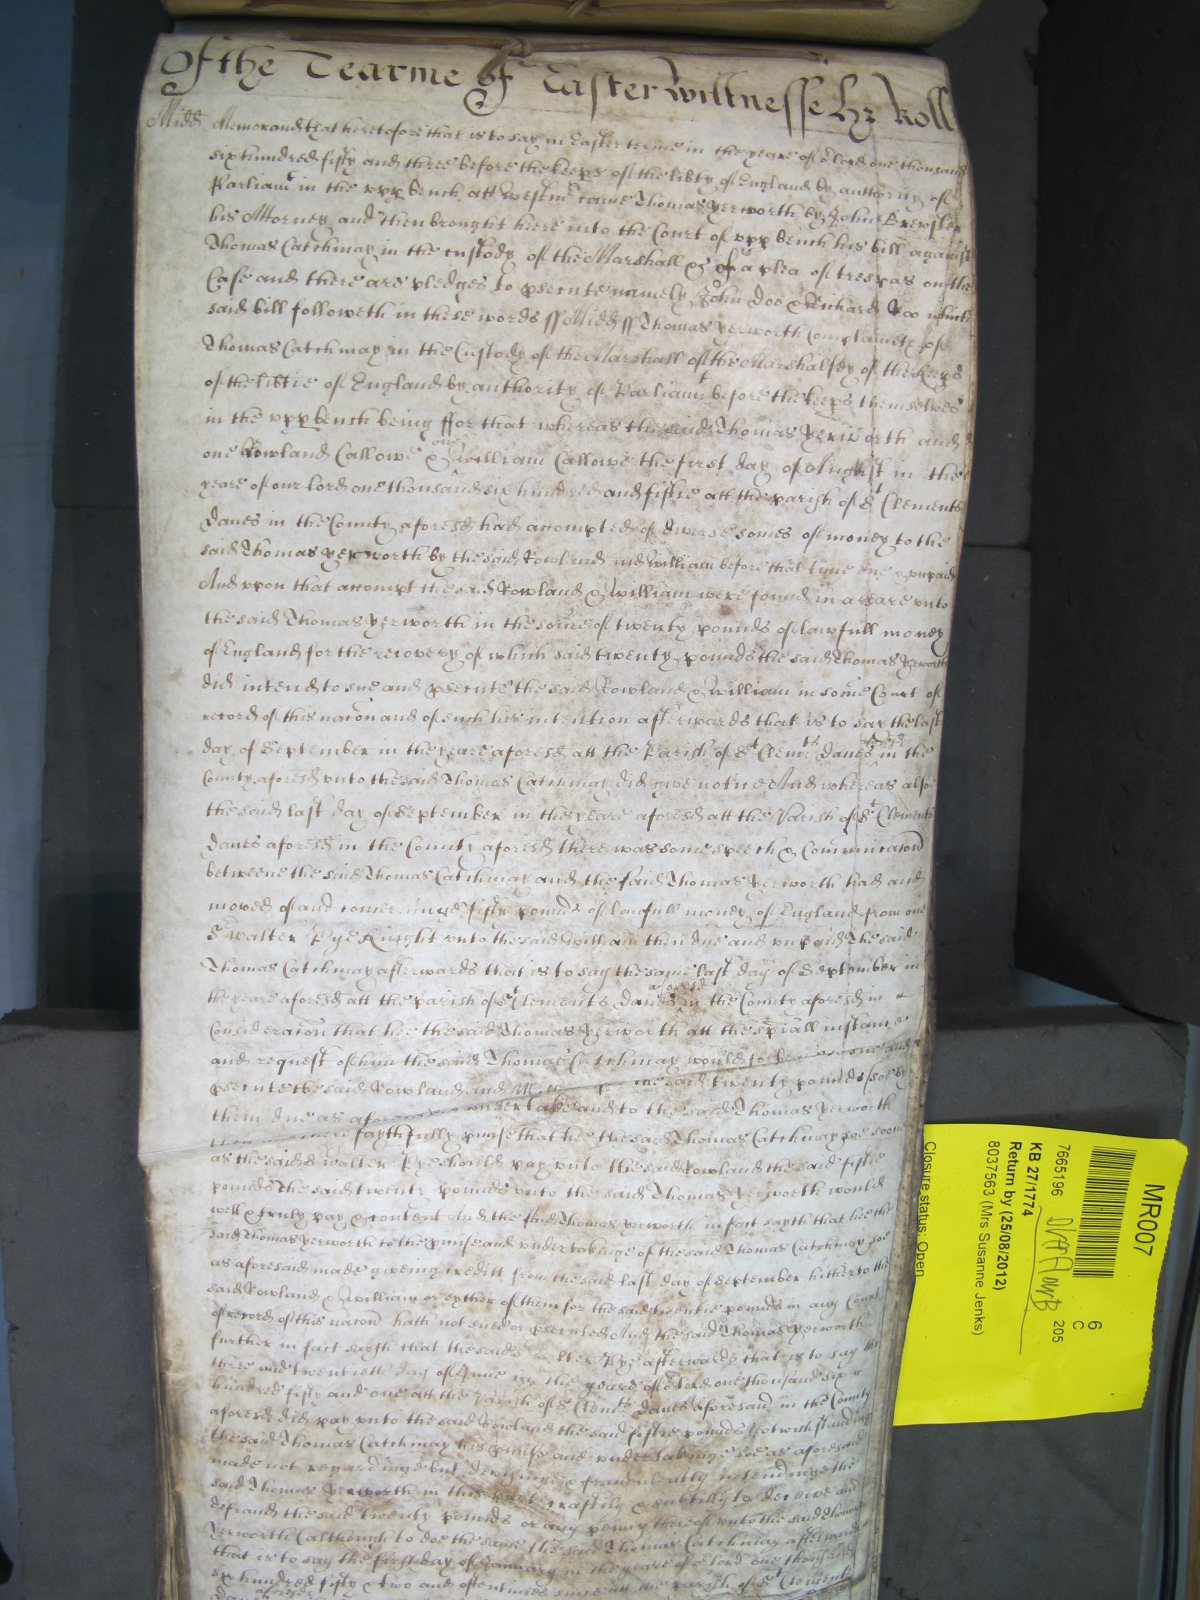 Of the Tearme of Easter Wittnesse Hz Roll
Midd Memorand that heretofore that is to say in Easter terme in the yeare of or lord one thousand
six hundred fifty and three before the keeps of the libty of England by authority of
Parliamt in the vpp bench att Westmr came Thomas Yerworth by John Brewster
his Attorney and then brought heere into the Court of vpp bench his bill against
Thomas Catchmay in the custody of the Marshall &c of a plea of trespas on the
Case and there are pledges to psecute namely John Doo & Richard Roo which
said bill followeth in these words ss Midd ss Thomas Yerworth complaineth of
Thomas Catchmay in the Custody of the Marshall of the Marshalsey of the keeps
of the libtie of England by authority of Parliamt before the keeps themselves
in the vpp bench being ffor that whereas the said Thomas Yerworth and
one Rowland Callowe & one William Callowe the first day of August in the
yeare of our lord one thousand six hundred and fiftie att the parish of St Clements
Danes in the County aforesd had accompted of diverse somes of money to the
said Thomas Yerworth by the said Rowland and William before that tyme due & vnpaid
And vpon that accompt the said Rowland & William were found in areare vnto
the said Thomas Yerworth in the some of twenty pounds of lawfull money
of England for the recovery of which said twenty pounds the said Thomas Yerworth
did intend to sue and psecute the said Rowland & William in some Court of
record of this nacon and of such his intention afterwards that is to say the last
day of September in the yeare aforesd att the Parish of St Clemts Danes aforesd in the
County aforesd vnto the said Thomas Catchmay did give notice And whereas also
the said last day of September in the yeare aforesd att the Parish of St Clements
Danes aforesd in the County aforesd there was some speech & Communicacon
betweene the said Thomas Catchmay and the said Thomas Yerworth had and
moved of and concerninge fifty pounds of lawfull money of England from one
Sr Walter Pye Knight vnto the said William then due and vnpaid The said
Thomas Catchmay afterwards that is to say the same last day of September in
the yeare aforesd att the parish of St Clements Danes aforesd in the County aforesd in
Consideracon that hee the said Thomas Yerworth att the spiall instance
and request of him the said Thomas Catchmay would
psecute the said Rowland and the said twenty pounds soe by
them due as vndertake and to the said Thomas Yerworth
faythfully pmise that hee the said Thomas Catchmay soe soone
as the said Sr Walter Pye should pay vnto the said Rowland the said fiftie
pounds the said twenty pounds vnto the said Thomas Yerworth would
well & truly pay & content And the said Thomas Yerworth in fact sayth that hee the
said Thomas Yerworth to the pmise and vndertakinge of the said Thomas Catchmay soe
as aforesaid made giveing creditt from the said last day of September hitherto the
said Rowland & William or eyther of them for the said twentie pounds in any Court
of record of this nacon hath not sued or psecuted And the said Thomas Yerworth
further in fact sayth that the said Walter Pye afterwards that is to say the
three and twentieth day of June in the yeare of or lord one thousand six
hundred fifty and one att the Parish of St Clemts Danes aforesaid in the County
aforesd did pay vnto the said Rowland the said fiftie pounds Notwithstanding
the said Thomas Catchmay his pmise and vndertakinge soe as aforesaid
made not regardinge but devysinge & fraudulently intendinge the
said Thomas Yerworth in this craftily & subtilly to deceive and
defraud the said twenty pounds or any penny thereof vnto the said Thomas
Yerworth (although to doe the same the said Thomas Catchmay afterwards
that is to say the first day of January in the yeare of or lord one thousand
six hundred fifty & two and oftentimes since att the parish of St Clements
aforesd
MR007
6
C
7665196 205
KB 27/1774
Return by (25/08/2012)
8037563 (Mrs Susanne Jenks)
Closure status: Open